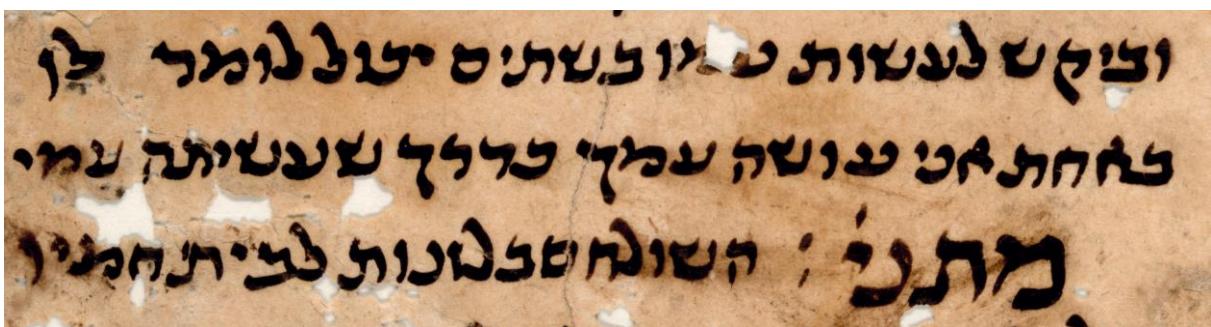 וביקש לעשות עמו בשתים יכול לומר לו
באחת אני עושה עמך כדרך שעשיתה עמי
מתני׳ : השולח סבלונות לבית חמיו